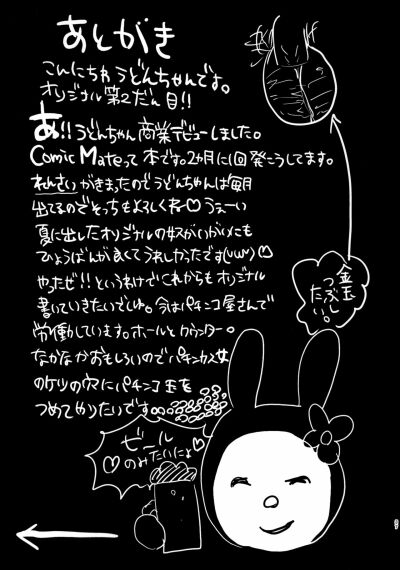 あとがき
こんにちわうどんちゃんです。
オリジナル第2だん目!!
あ!!うどんちゃん商業デビューしました。
Comic Mateって本です。2ヶ月に1回発こうしてます。
れんさいがきまったのでうどんちゃんは毎月
出てるのでそっちもよろしくね♡うぇーい
夏に出したオリジナルの
ひょうばんが良くてうれしかったです(υωυ)♡
やったゼ!!というわけでこれからもオリジナル
書いていきたいでしゅ。今はパチンコ屋さんで
労働しています。ホールとカウンター。
なかなかおもしろいのでパチンカス女
のケツの穴にパチンコ玉を
つめてやりたいです∞。
金玉
つぶし
たい。
ビール
のみたいにょ♡